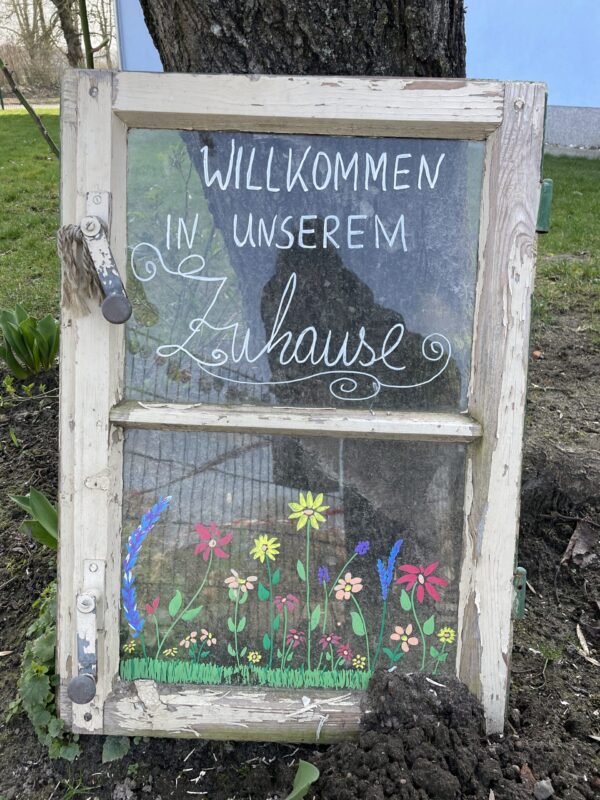 WILLKOMMEN
IN UNSEREM
Zuhause